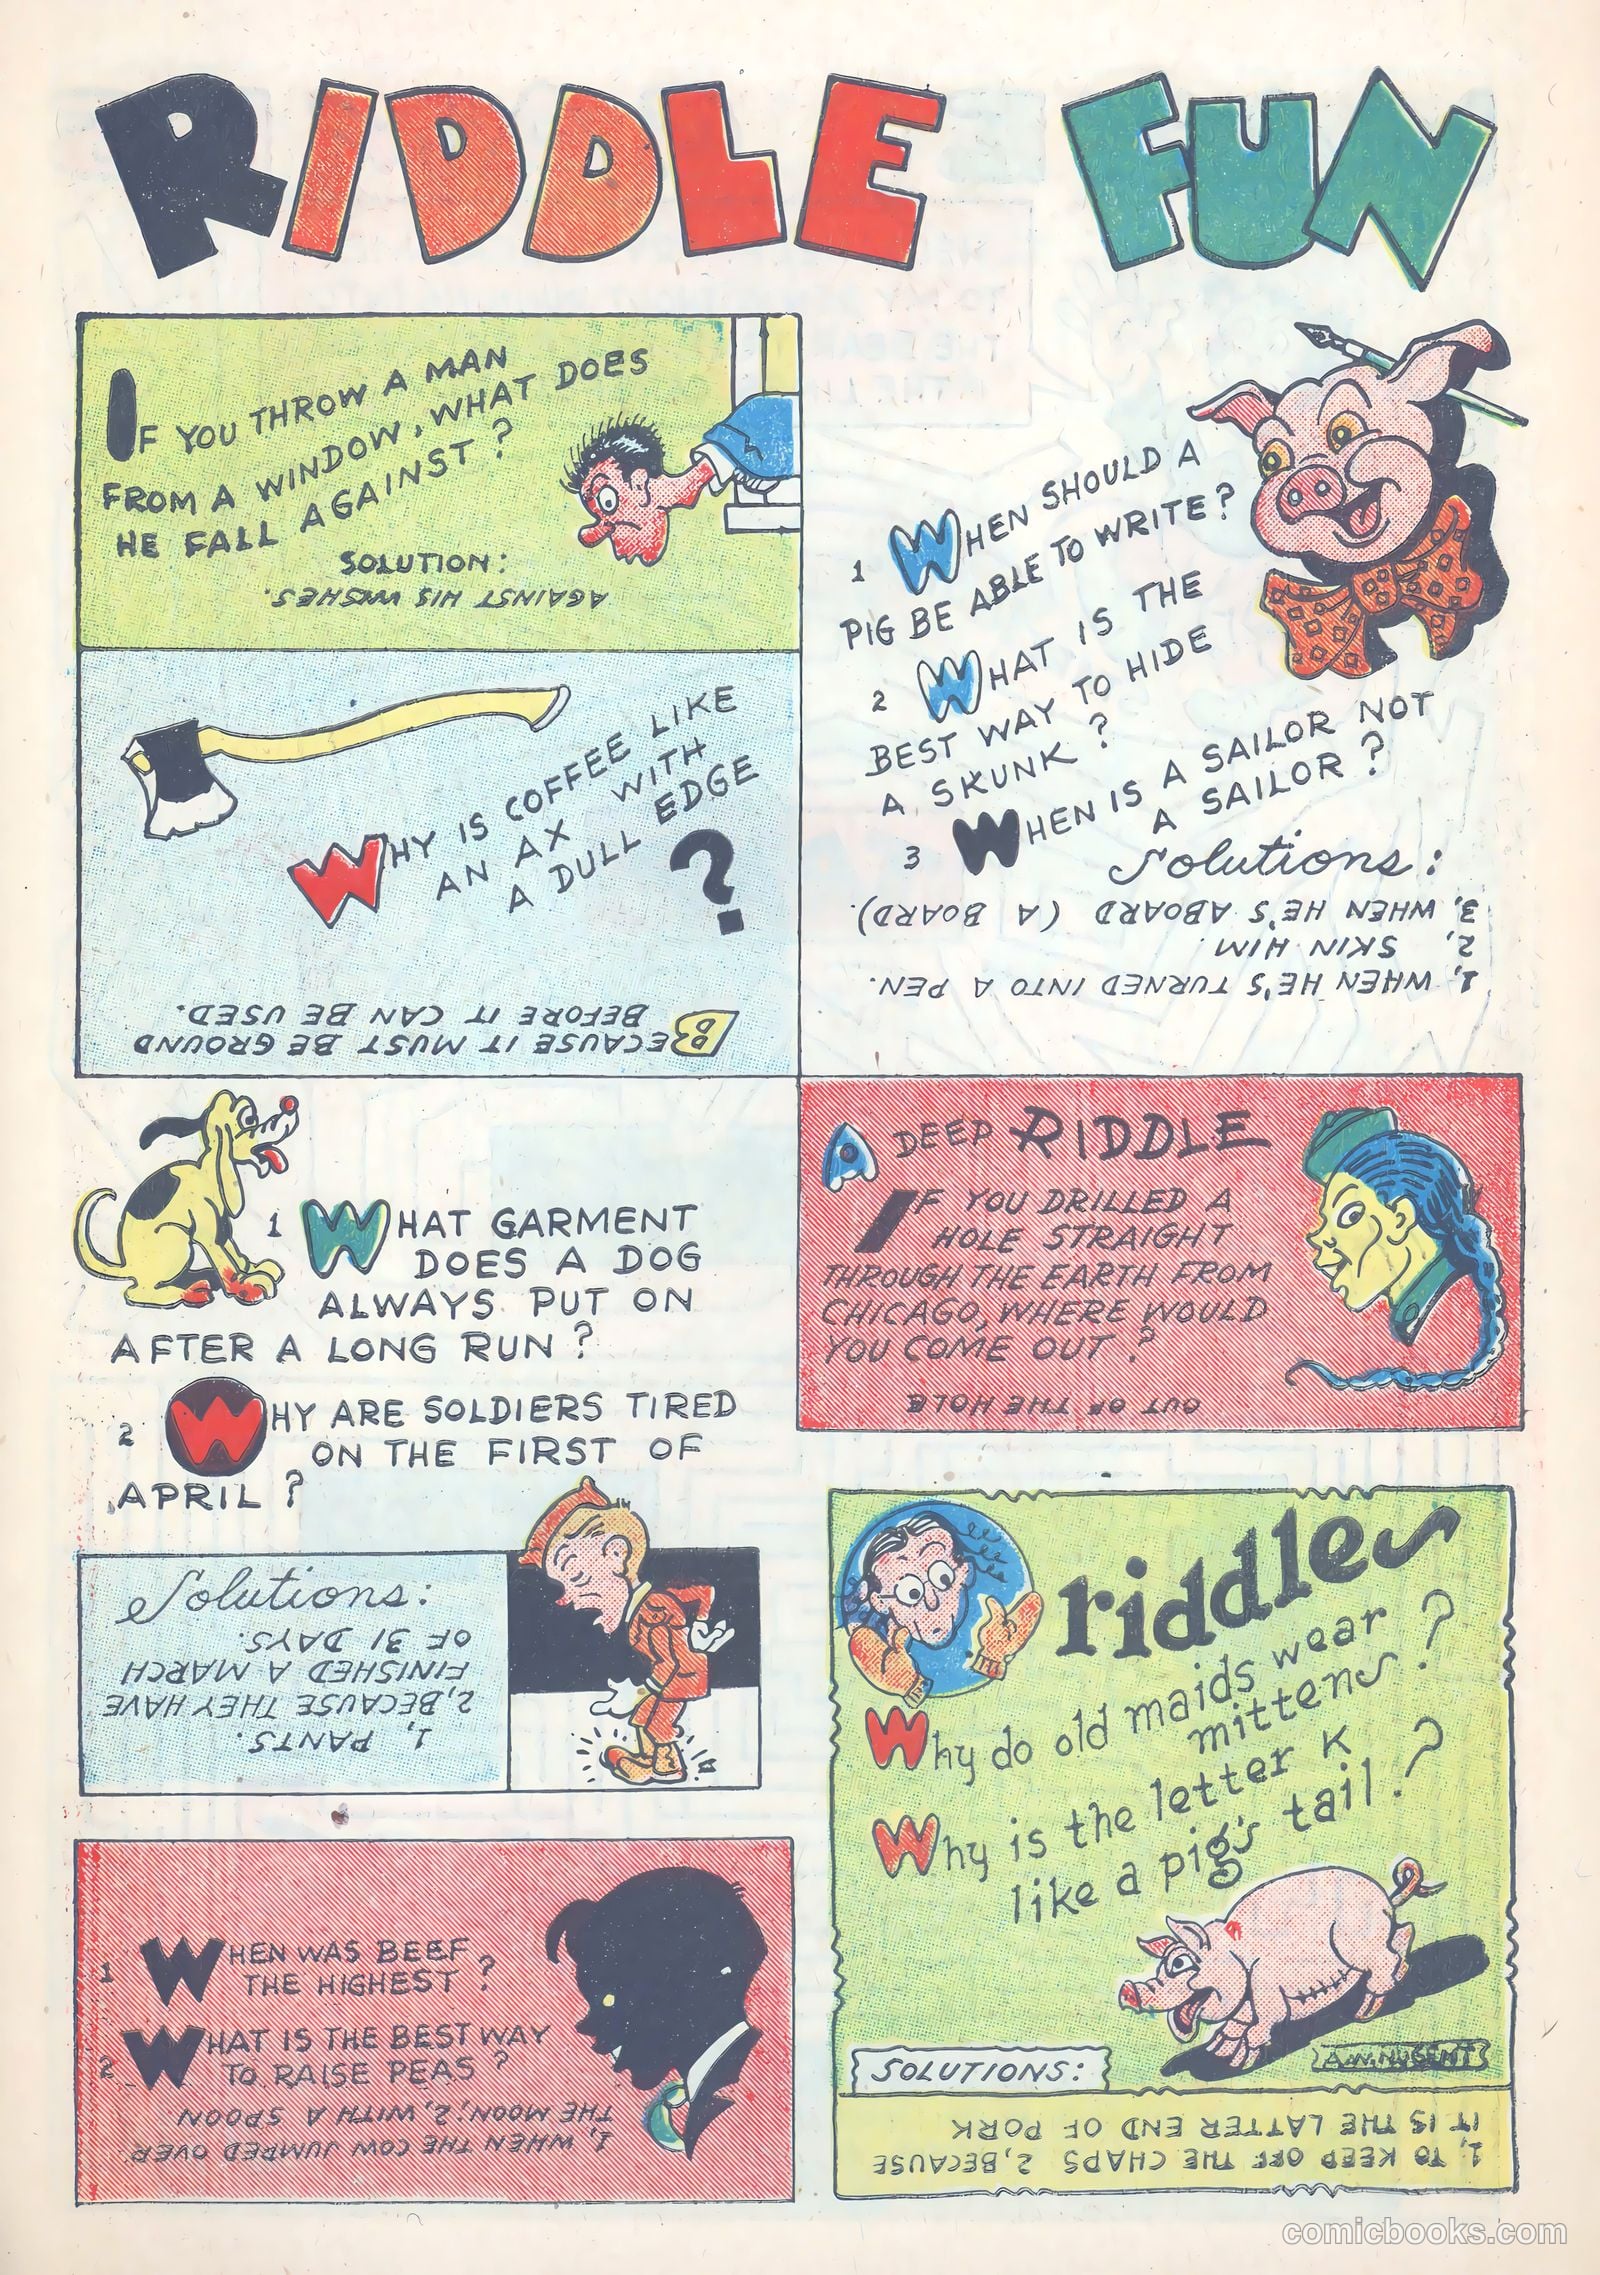 RIDDLE FUN
IF YOU THROW A MAN
FROM A WINDOW, WHAT DOES
HE FALL AGAINST?
SOLUTION:
AGAINST HIS WISHES.
WHY IS COFFEE LIKE
AN AX WITH
A DULL EDGE
?
BECAUSE IT MUST BE GROUND
BEFORE IT CAN BE USED.
1 WHEN SHOULD A
PIG BE ABLE TO WRITE?
2 WHAT IS THE
BEST WAY TO HIDE
A SKUNK?
3 WHEN IS A SAILOR NOT
A SAILOR?
Solutions:
1, WHEN HE'S TURNED INTO A PEN.
2, SKIN HIM.
3, WHEN HE'S ABOARD (A BOARD).
1 WHAT GARMENT
DOES A DOG
ALWAYS PUT ON
AFTER A LONG RUN?
2 WHY ARE SOLDIERS TIRED
ON THE FIRST OF
APRIL?
Solutions:
1, PANTS.
2, BECAUSE THEY HAVE
FINISHED A MARCH
OF 31 DAYS.
A DEEP RIDDLE
IF YOU DRILLED A
HOLE STRAIGHT
THROUGH THE EARTH FROM
CHICAGO, WHERE WOULD
YOU COME OUT?
OUT OF THE HOLE
1 WHEN WAS BEEF
THE HIGHEST?
2 WHAT IS THE BEST WAY
TO RAISE PEAS?
1, WHEN THE COW JUMPED OVER
THE MOON; 2, WITH A SPOON.
riddles
Why do old maids wear
mittens?
Why is the letter K
like a pig's tail?
A.W. NUGENT
SOLUTIONS:
1, TO KEEP OFF THE CHAPS 2, BECAUSE
IT IS THE LATTER END OF PORK
comicbooks.com